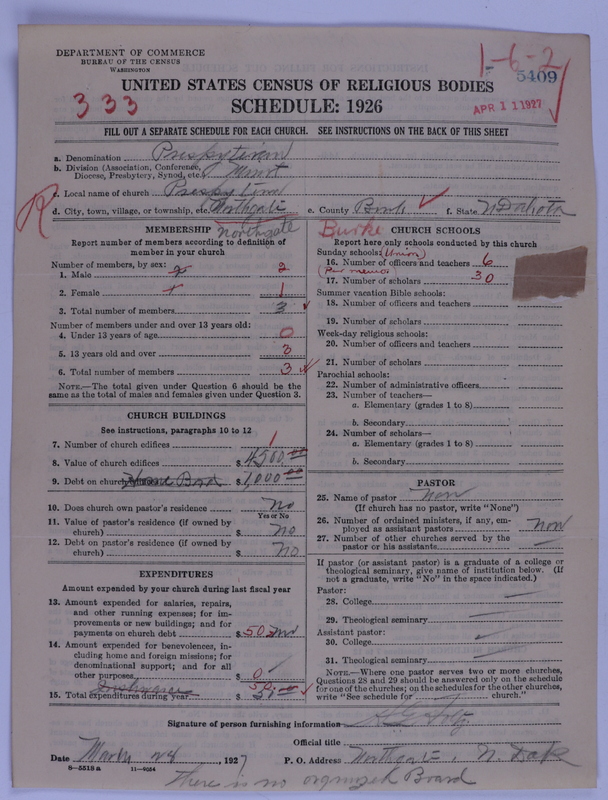 DEPARTMENT OF COMMERCE
BUREAU OF THE CENSUS
WASHINGTON
1-6-2
5409
333
UNITED STATES CENSUS OF RELIGIOUS BODIES
SCHEDULE: 1926
APR 11 1927
FILL OUT A SEPARATE SCHEDULE FOR EACH CHURCH. SEE INSTRUCTIONS ON THE BACK OF THIS SHEET
a. Denomination Presbyterian
b. Division (Association, Conference, Diocese, Presbytery, Synod, etc.) Minot
c. Local name of church
d. City, town, village, or township, etc. Northgate
e. County Burk f. State N Dakota
R
Northgate
Burke
MEMBERSHIP
Report number of members according to definition of member in your church
Number of members, by sex:
1. Male 2
2. Female 1
3. Total number of members 3
Number of members under and over 13 years old:
4. Under 13 years of age 0
5. 13 years old and over 3
6. Total number of members 3
NOTE.—The total given under Question 6 should be the same as the total of males and females given under Question 3.
CHURCH BUILDINGS
See instructions, paragraphs 10 to 12
7. Number of church edifices 1
8. Value of church edifices $ 4500.00
9. Debt on church $ 1,000.00
10. Does church own pastor's residence No
Yes or No
11. Value of pastor's residence (if owned by church) $ No
12. Debt on pastor's residence (if owned by church) $ No
EXPENDITURES
Amount expended by your church during last fiscal year
13. Amount expended for salaries, repairs, and other running expenses; for improvements or new buildings; and for payments on church debt $ 50
14. Amount expended for benevolences, including home and foreign missions; for denominational support; and for all other purposes $ 0
15. Total expenditures during year $ 50
CHURCH SCHOOLS
Report here only schools conducted by this church
Sunday schools: (Union)
16. Number of officers and teachers 6
(Per memo)
17. Number of scholars 30
Summer vacation Bible schools:
18. Number of officers and teachers
19. Number of scholars
Week-day religious schools:
20. Number of officers and teachers
21. Number of scholars
Parochial schools:
22. Number of administrative officers
23. Number of teachers—
a. Elementary (grades 1 to 8)
b. Secondary
24. Number of scholars—
a. Elementary (grades 1 to 8)
b. Secondary
PASTOR
25. Name of pastor Non
(If church has no pastor, write "None")
26. Number of ordained ministers, if any, employed as assistant pastors Non
27. Number of other churches served by the pastor or his assistants
If pastor (or assistant pastor) is a graduate of a college or theological seminary, give name of institution below. (If not a graduate, write "No" in the space indicated.)
Pastor:
28. College
29. Theological seminary
Assistant pastor:
30. College
31. Theological seminary
NOTE.—Where one pastor serves two or more churches, Questions 28 and 29 should be answered only on the schedule for one of the churches; on the schedules for the other churches, write "See schedule for church."
Signature of person furnishing information
Official title
Date March 28, 1927 P. O. Address Northgate, N. Dak
8—5518 a 11—9054
There is no organized Board